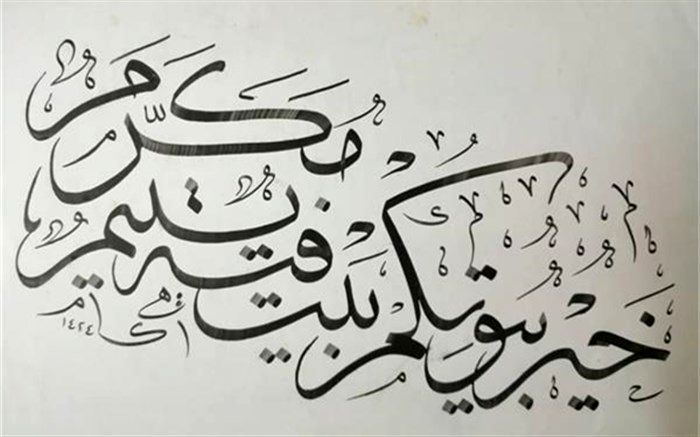 خير بيوتكم بيت فيه يتيم مكرّم
١٤٢٤